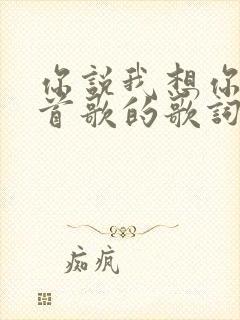 你說我想你
首歌的歌詞
痴瘋